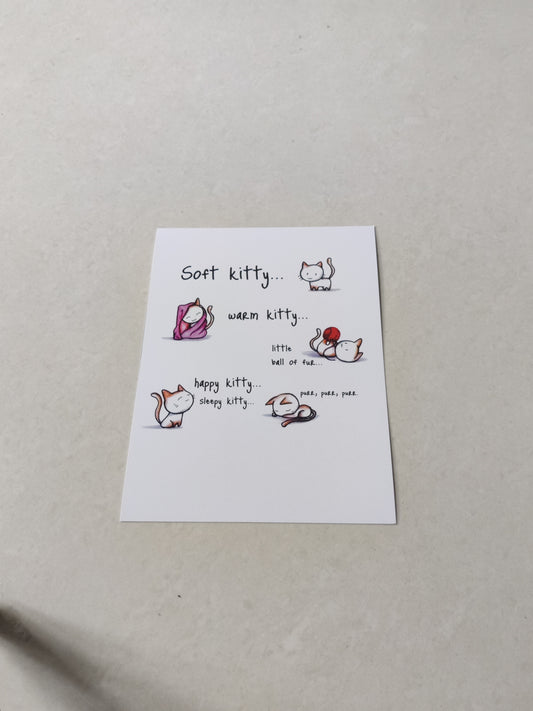 Soft kitty...
warm kitty...
little
ball of fur...
happy kitty...
sleepy kitty...
purr, purr, purr.